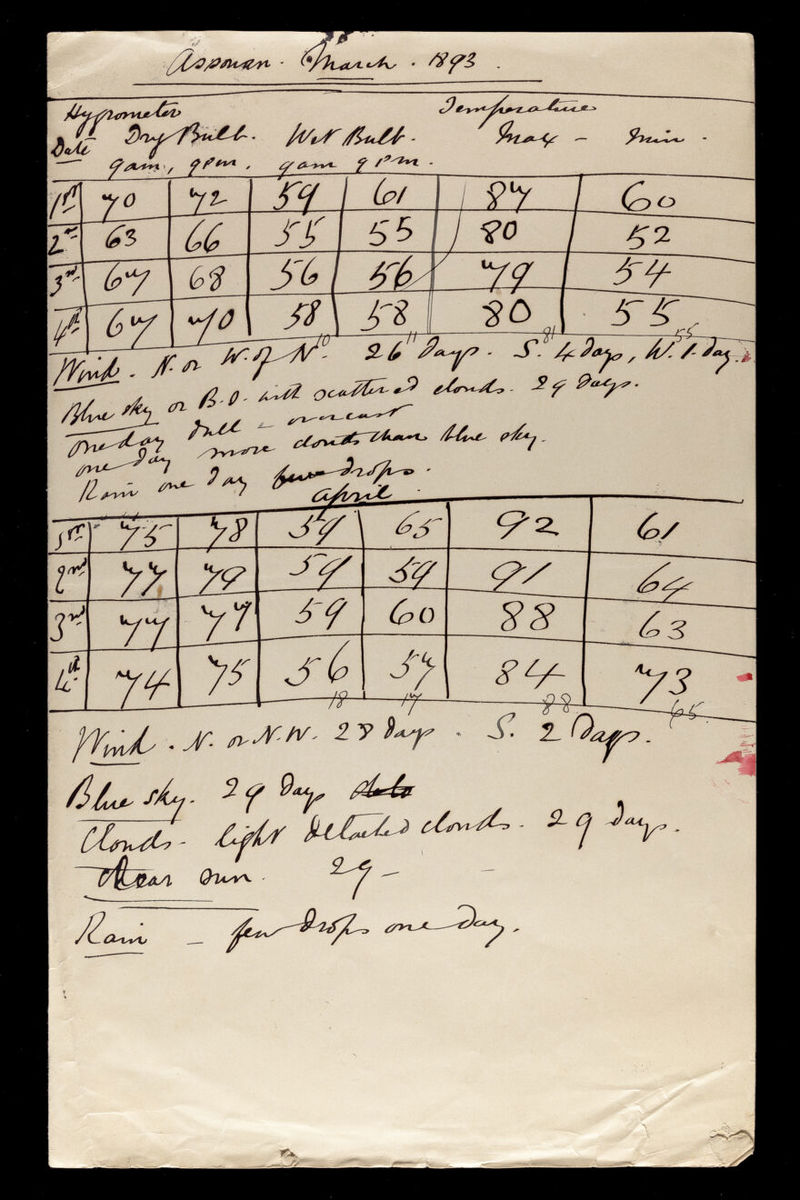 Assouan. March. 1893.
Hygrometer Temperature
Date Dry Bulb. Wet Bulb. Max - Min.
9am, 9pm. 9am 9pm.
1st 70 72 59 61 87 60
2nd 63 66 55 55 80 52
3rd 67 68 56 56 79 54
4th 67 70 58 58 80 55
10 11 81 55
Wind. N. or W. of N. 26 days. S. 4 days, W. 1. day.
Blue sky or B.S. with scattered clouds. 29 days.
one day dull - overcast
one day more clouds than blue sky.
Rain one day few drops.
April
1st 75 78 59 65 92 61
2nd 77 79 59 59 91 64
3rd 77 77 59 60 88 63
4th 74 75 56 57 84 73
18 17 88 65
Wind. N. or N.W. 28 days. S. 2 Days.
Blue sky. 29 days
Clouds - light detached clouds. 29 days.
Clear sun. 29 -
Rain - few drops one day.